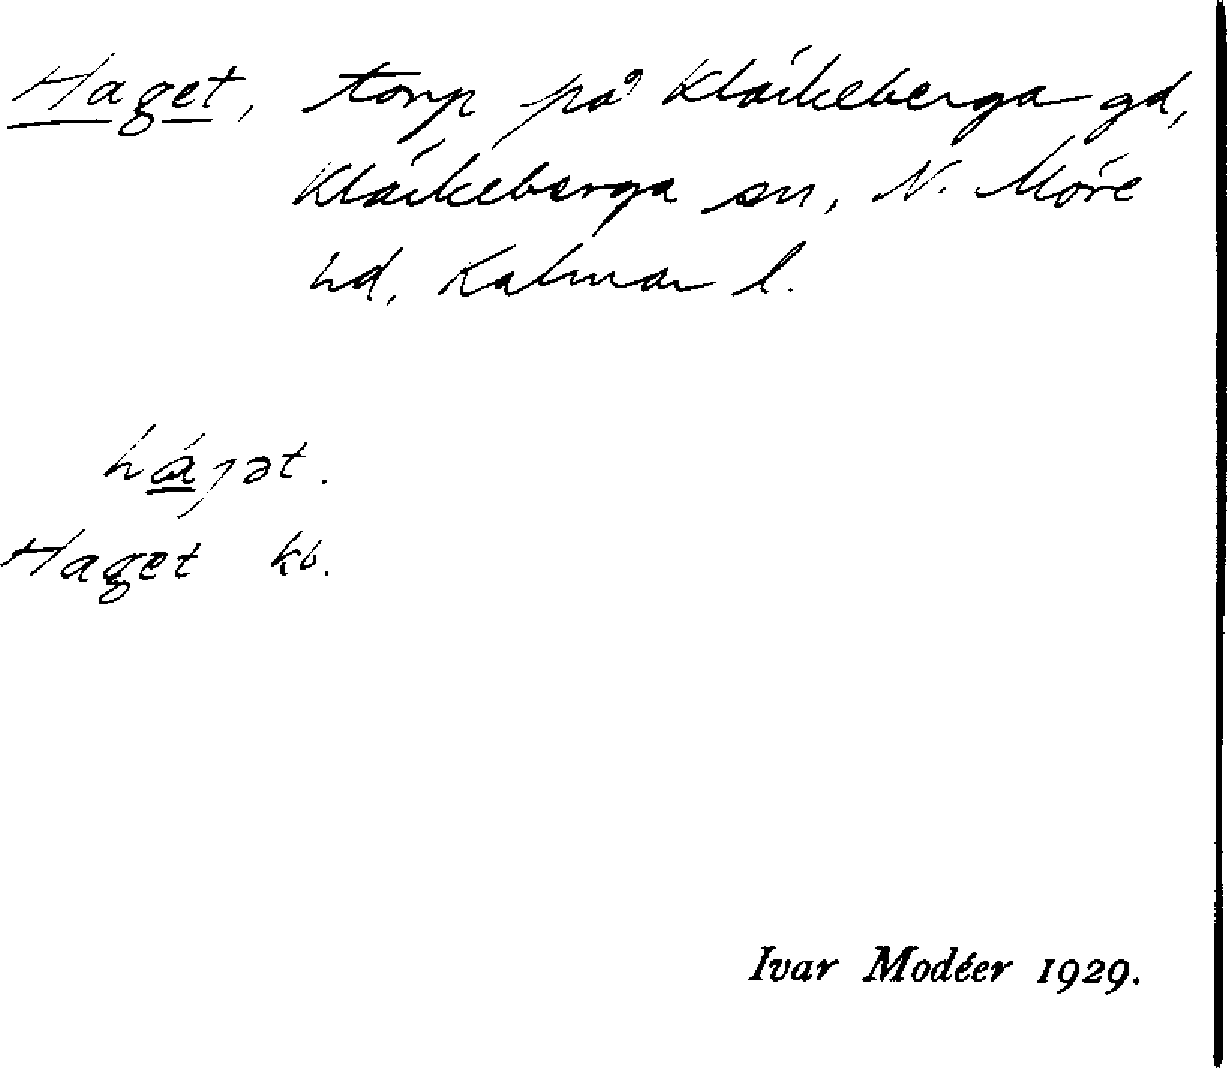 Haget, torp på Kläckeberga gd,
Kläckeberga sn, N. Möre
hd, Kalmar l.
hágət.
Haget kb.
Ivar Modéer 1929.